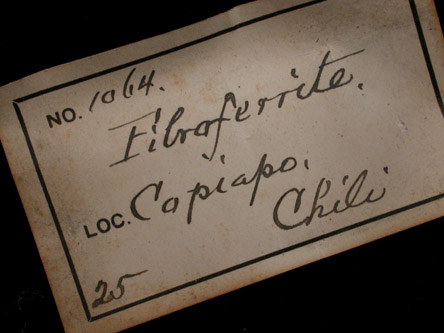 NO. 1064.
Fibroferrite.
LOC. Copiapo.
Chili
25